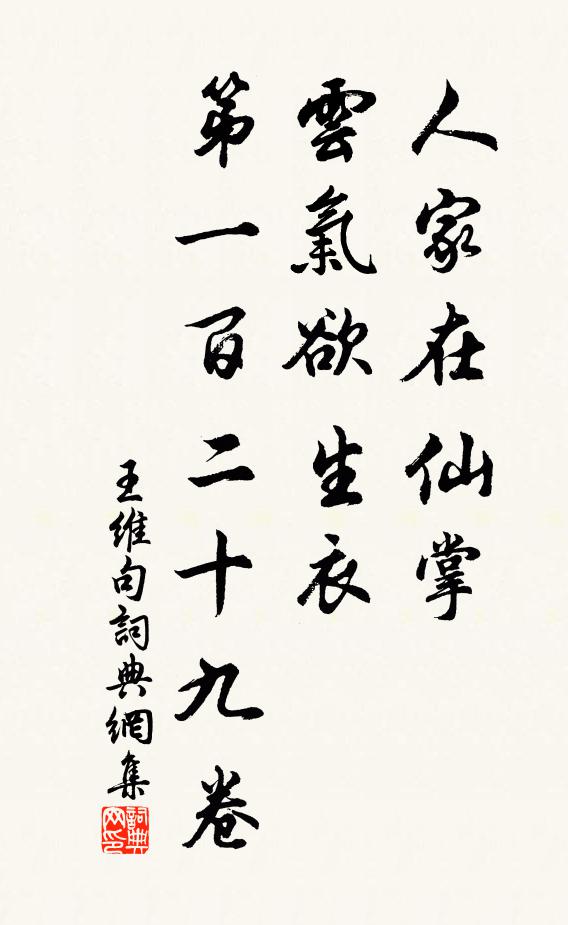 人家在仙掌
雲氣欲生衣
第一百二十九卷
王維句詞典網集
詞典
网印